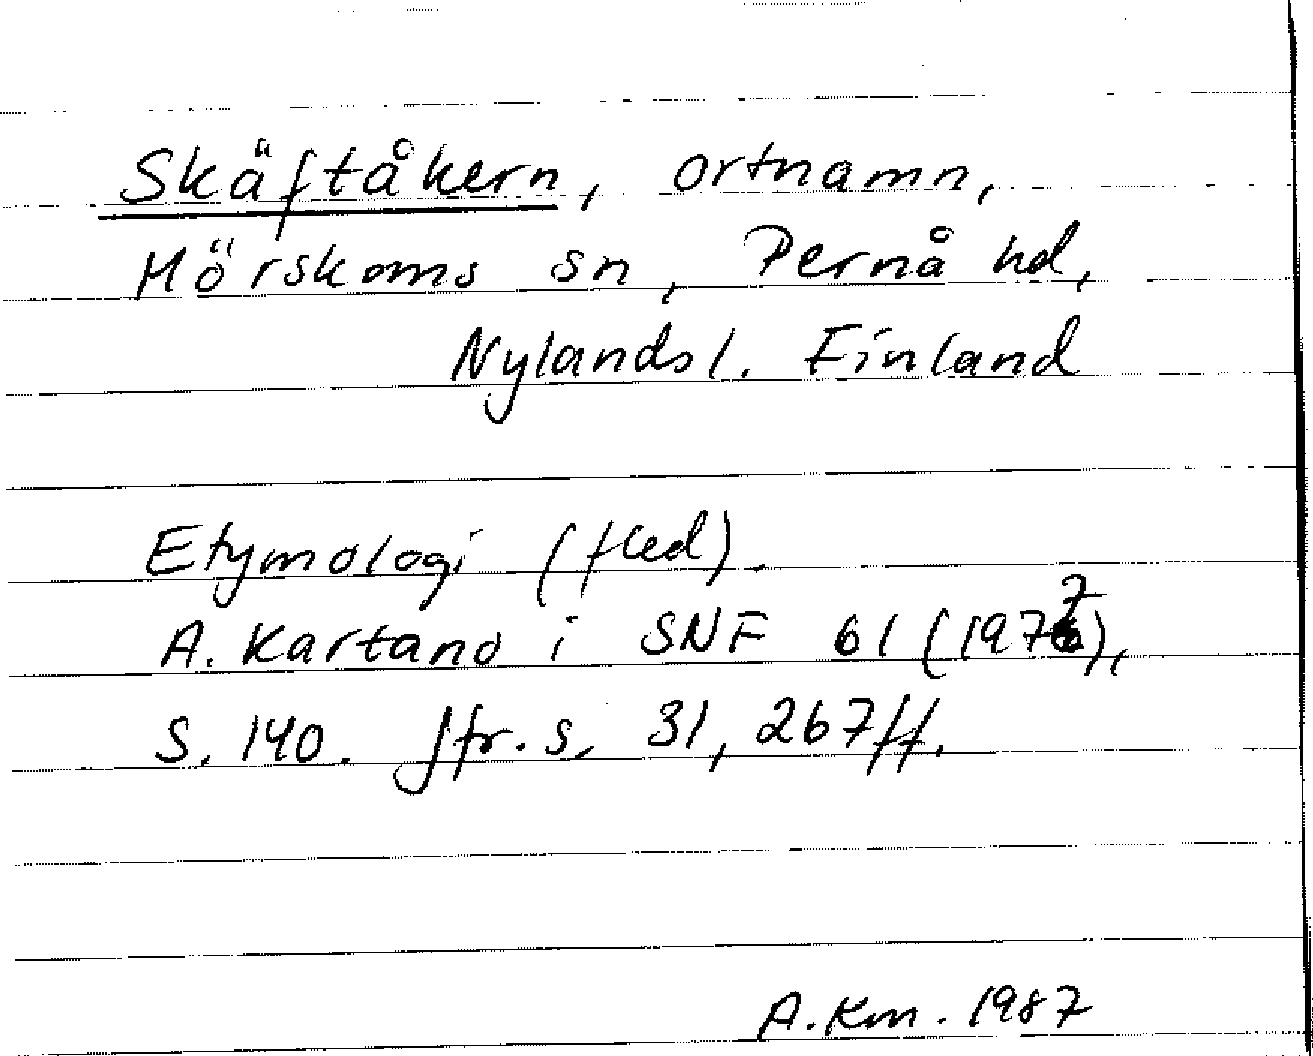 Skäftåkern, ortnamn,
Mörskoms sn, Pernå hd,
Nylands l. Finland
Etymologi (fled).
A. Kartano i SNF 61 (1977),
S. 140. Jfr. s. 31, 267ff.
A. Km. 1987